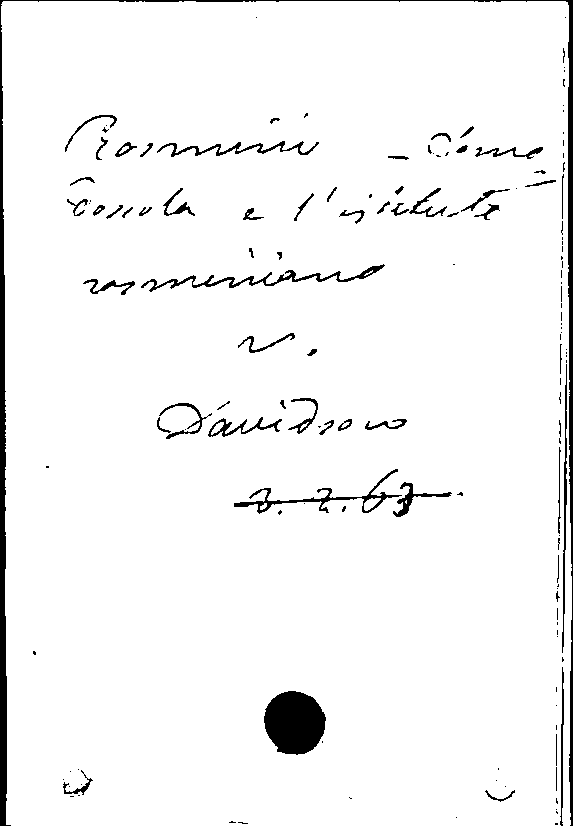 Rosmini - Domo=
dossola e l'istituto
rosminiano
v.
Davidson
2. 2. 63